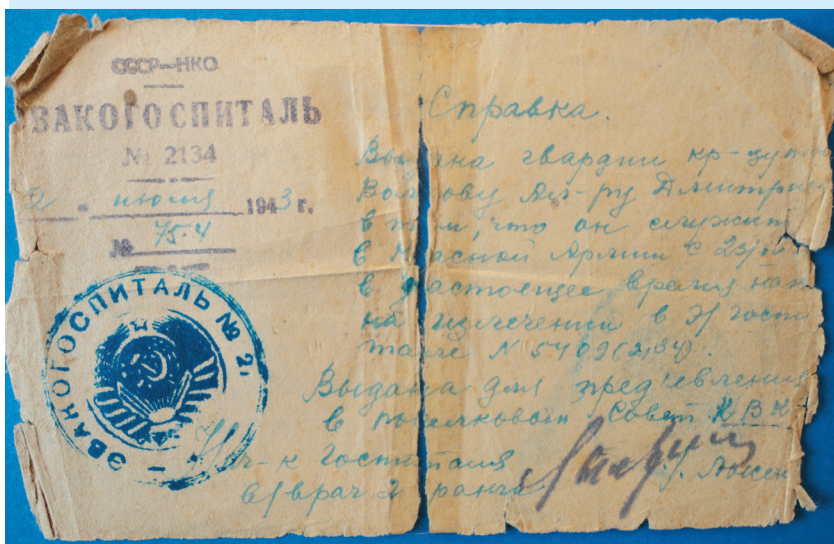 СССР—НКО
ВАКОГОСПИТАЛЬ
№ 2134
2 " июля 1943 г.
№ 754
ЭВАКОГОСПИТАЛЬ № 21
Справка.
Выдана гвардии кр-цу
Волкову Дмитри
в том, что он служит
в Красной Армии с
в настоящее время нах
на излечении в Э/госпи
тале N 5409 (2134).
Выдана для предъевления
в поселковой Совет
Нач-к Госпиталя
в/врач 2 ранга